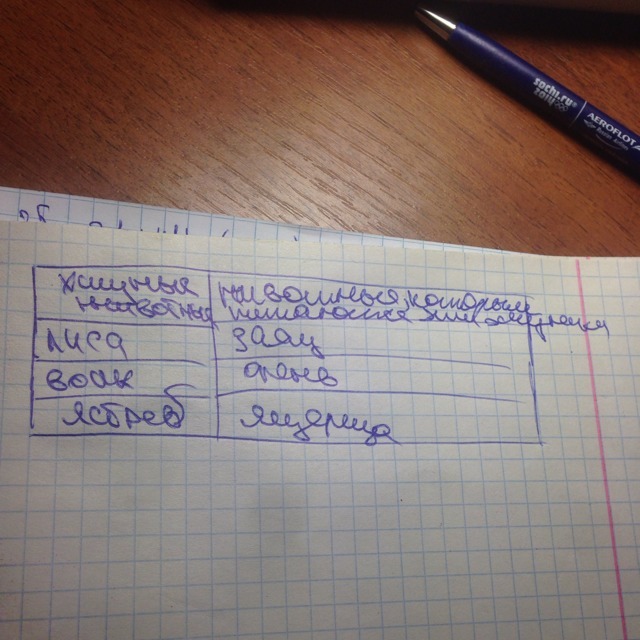 sochi.ru
2014
AEROFLOT
хищные животные
животные, которыми питаются эти хищники
лиса
заяц
волк
олень
ястреб
ящерица